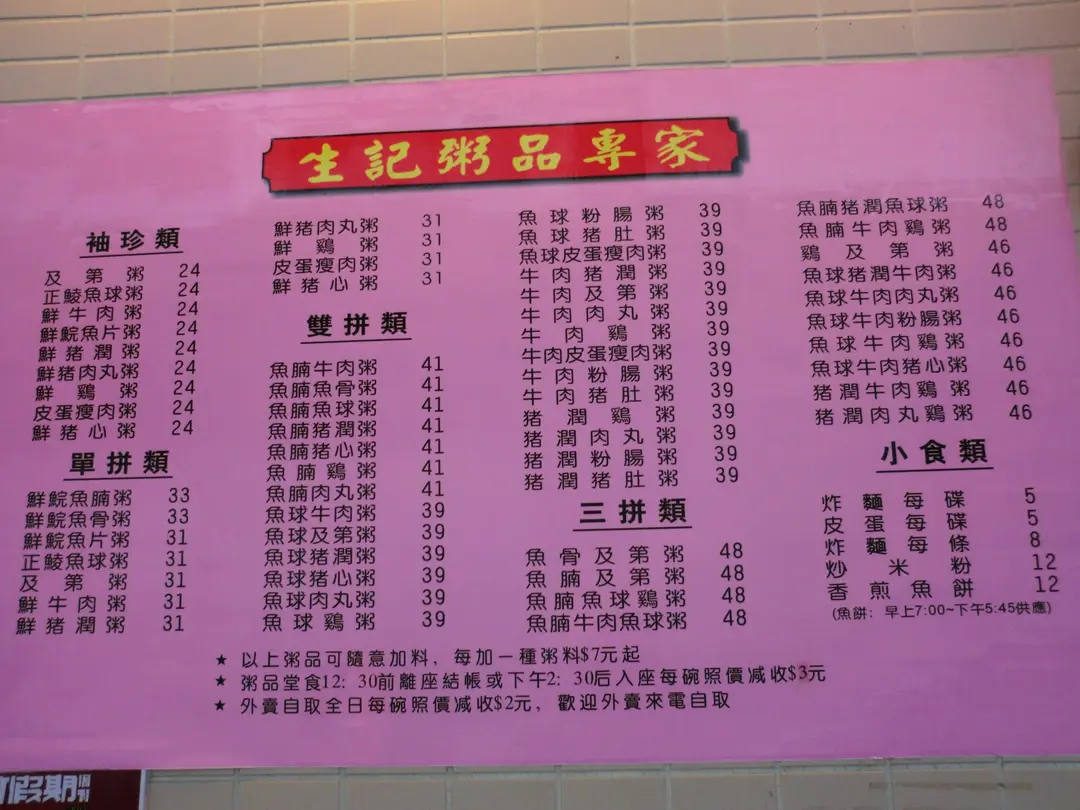 生記粥品專家
袖珍類
及第粥 24
正鯪魚球粥 24
鮮牛肉粥 24
鮮鯇魚片粥 24
鮮猪潤粥 24
鮮猪肉丸粥 24
鮮鷄粥 24
皮蛋瘦肉粥 24
鮮猪心粥 24
單拼類
鮮鯇魚腩粥 33
鮮鯇魚骨粥 33
鮮鯇魚片粥 31
正鯪魚球粥 31
及第粥 31
鮮牛肉粥 31
鮮猪潤粥 31
鮮猪肉丸粥 31
鮮鷄粥 31
皮蛋瘦肉粥 31
鮮猪心粥 31
雙拼類
魚腩牛肉粥 41
魚腩魚骨粥 41
魚腩魚球粥 41
魚腩猪潤粥 41
魚腩猪心粥 41
魚腩鷄粥 41
魚腩肉丸粥 41
魚球牛肉粥 39
魚球及第粥 39
魚球猪潤粥 39
魚球猪心粥 39
魚球肉丸粥 39
魚球鷄粥 39
魚球粉腸粥 39
魚球猪肚粥 39
魚球皮蛋瘦肉粥 39
牛肉猪潤粥 39
牛肉及第粥 39
牛肉肉丸粥 39
牛肉鷄粥 39
牛肉皮蛋瘦肉粥 39
牛肉粉腸粥 39
牛肉猪肚粥 39
猪潤鷄粥 39
猪潤肉丸粥 39
猪潤粉腸粥 39
猪潤猪肚粥 39
三拼類
魚骨及第粥 48
魚腩及第粥 48
魚腩魚球鷄粥 48
魚腩牛肉魚球粥 48
魚腩猪潤魚球粥 48
魚腩牛肉鷄粥 48
鷄及第粥 46
魚球猪潤牛肉粥 46
魚球牛肉肉丸粥 46
魚球牛肉粉腸粥 46
魚球牛肉鷄粥 46
魚球牛肉猪心粥 46
猪潤牛肉鷄粥 46
猪潤肉丸鷄粥 46
小食類
炸麵每碟 5
皮蛋每碟 5
炸麵每條 8
炒米粉 12
香煎魚餅 12
(魚餅：早上7:00~下午5:45供應)
★ 以上粥品可隨意加料，每加一種粥料$7元起
★ 粥品堂食12：30前離座結帳或下午2：30后入座每碗照價減收$3元
★ 外賣自取全日每碗照價減收$2元，歡迎外賣來電自取
假期